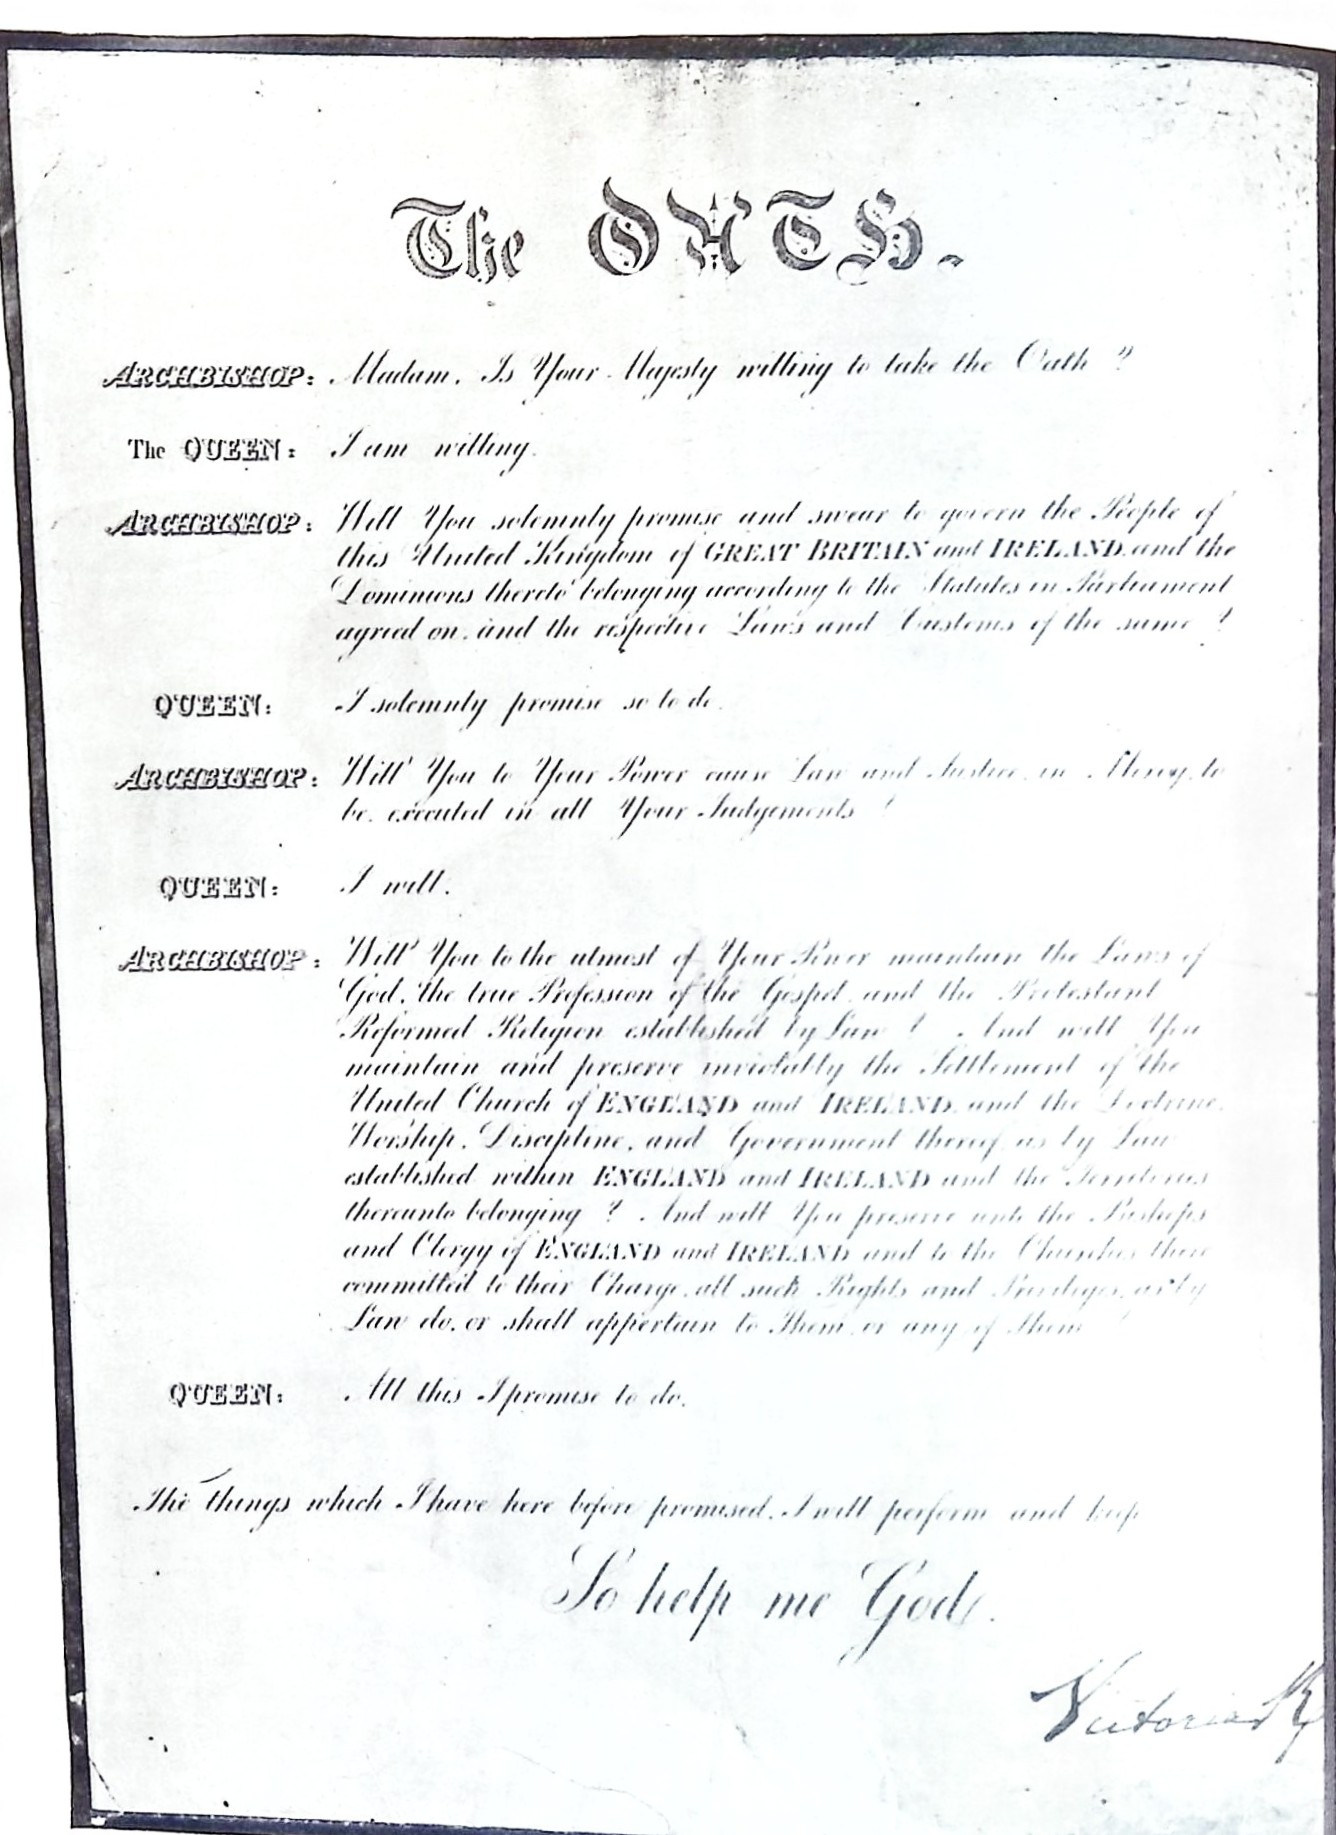 The OATH.
ARCHBISHOP: Madam, Is Your Majesty willing to take the Oath?
The QUEEN: I am willing.
ARCHBISHOP: Will You solemnly promise and swear to govern the People of
this United Kingdom of GREAT BRITAIN and IRELAND, and the
Dominions thereto belonging according to the Statutes in Parliament
agreed on, and the respective Laws and Customs of the same?
QUEEN: I solemnly promise so to do.
ARCHBISHOP: Will You to Your Power cause Law and Justice, in Mercy, to
be executed in all Your Judgements?
QUEEN: I will.
ARCHBISHOP: Will You to the utmost of Your Power maintain the Laws of
God, the true Profession of the Gospel, and the Protestant
Reformed Religion established by Law? And will You
maintain and preserve inviolably the Settlement of the
United Church of ENGLAND and IRELAND, and the Doctrine,
Worship, Discipline, and Government thereof, as by Law
established within ENGLAND and IRELAND and the Territories
thereunto belonging? And will You preserve unto the Bishops
and Clergy of ENGLAND and IRELAND and to the Churches there
committed to their Charge, all such Rights and Privileges, as by
Law do, or shall appertain to Them, or any of Them?
QUEEN: All this I promise to do.
The things which I have here before promised, I will perform and keep
So help me God.
Victoria R